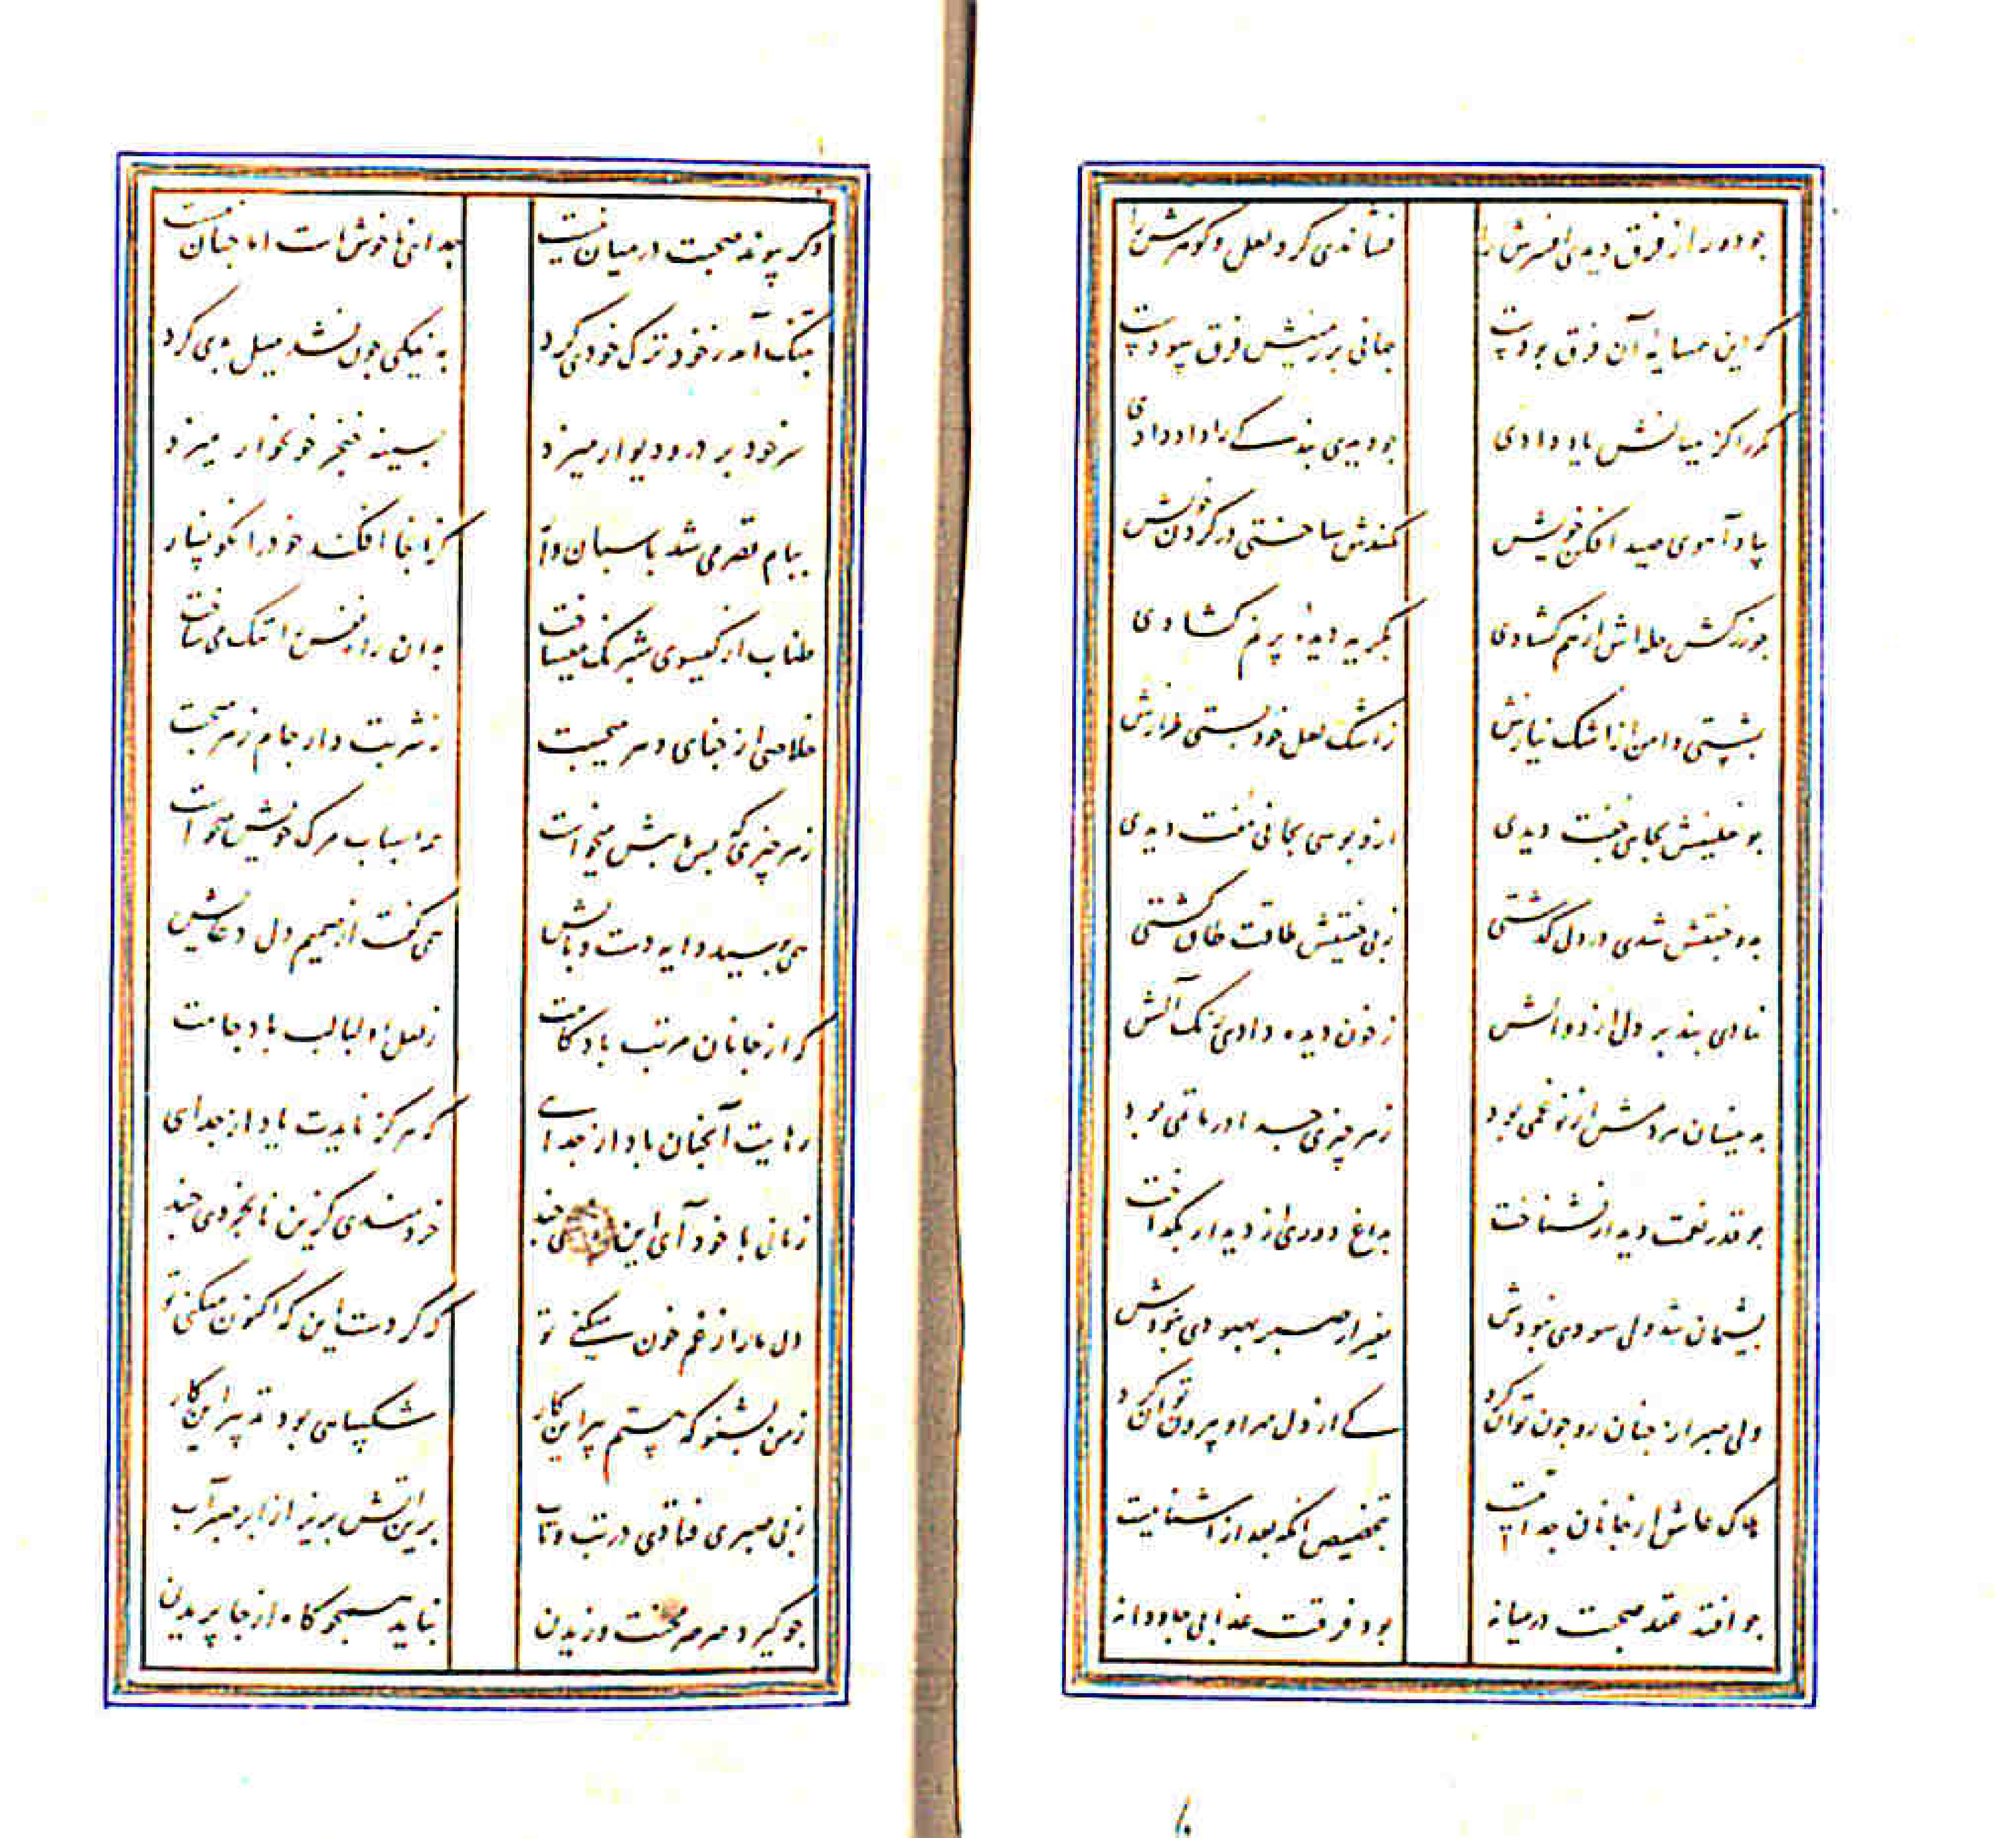 چو دور از فرق دیدی افسرش را
فشاندی گرد لعل و گوهرش را
که این همسایهٔ آن فرق بودست
جهانی بر زمینش فرق سودست
کمر را کز میانش یاد دادی
چو دیدی بندگی را داد دادی
بیاد آهوی صید افکن خویش
کمندش ساختی در گردن خویش
چو زرکش حله‌اش از هم گشادی
بگریه دیدهٔ پر نم گشادی
بشستی دامن از اشک نیازش
ز اشک لعل خود بستی طرازش
چو نعلینش بجایی جفت دیدی
ازو بوسی بجایی مفت دیدی
به جفتش شدی در دل گذشتی
ز بی جفتیش طاقت طاق گشتی
نهادی بند بر دل از دوالش
ز خون دیده دادی رنگ آلش
بدینسان هر دمش از نو غمی بود
ز هر چیزی جدا در ماتمی بود
چو قدر نعمت دیدار نشناخت
بداغ دوری از دیدار بگداخت
پشیمان شد ولی سودی نبودش
بغیر از صبر بهبودی نبودش
ولی صبر از چنان رو چون توان کرد
کی از دل مهر او بیرون توان کرد
هلاک عاشق از جانان جداییست
بتخصیص آنکه بعد از آشناییست
چو افتد عقد صحبت در میانه
بود فرقت عذابی جاودانه
وگر پیوند صحبت در میان نیست
جدایی ناخوش است اما چنان نیست
بتنگ آمد ز خود ترک خودی کرد
به نیکی چون نشد میل بدی کرد
سر خود بر در و دیوار میزد
بسینه خنجر خونخوار میزد
ببام قصر می شد پاسبان وار
کز آنجا افکند خود را نگونسار
طناب از گیسوی شبرنگ میساخت
بدان راه نفس را تنگ می ساخت
خلاصی از جفای دهر میجست
ز شربت دار جام زهر میجست
ز هر چیزی که بیش و کم میخواست
همه اسباب مرگ خویش میخواست
همی بوسید دایه دست و پایش
همی گفت از صمیم دل دعایش
که از جانان مرتب باد کامت
ز لعل او لبالب باد جامت
رهاییت آنچنان باد از جدایی
که هرگز نایدت یاد از جدایی
زمانی با خود آی این چند
خردمندی گزین نابخردی چند
دل ما را ز غم خون میکنی تو
که کردست این که اکنون میکنی تو
ز من بشنو که هستم پیر این کار
شکیبایی بود تدبیر این کار
ز بی صبری فتادی در تب و تاب
برین آتش بریز از ابر صبر آب
چو گیرد صرصر محنت وزیدن
نباید همچو کاه از جا پریدن